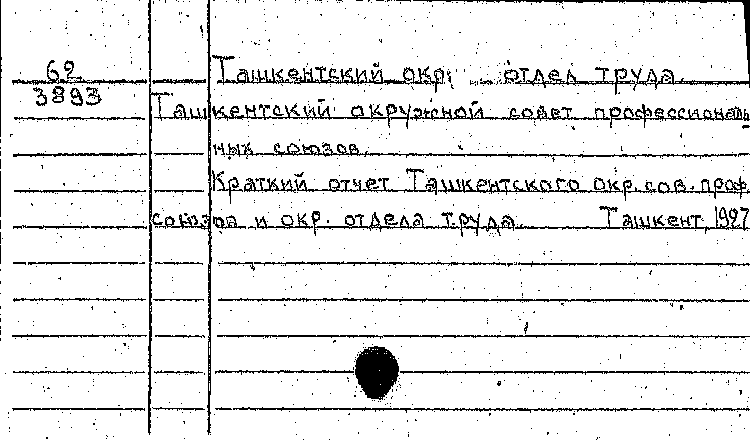 62
3893
Ташкентский окр. отдел труда.
Ташкентский окружной совет профессиональ
ных союзов.
Краткий отчет Ташкентского окр. сов. проф.
союзов и окр. отдела труда. Ташкент, 1927